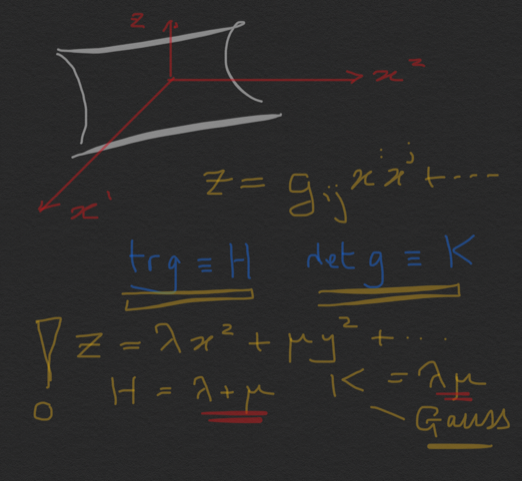 z
x²
x¹
z = g_ij xⁱ xʲ + ····
tr g ≡ H det g ≡ K
! z = λx² + μy² + ···
H = λ + μ K = λμ
Gauss